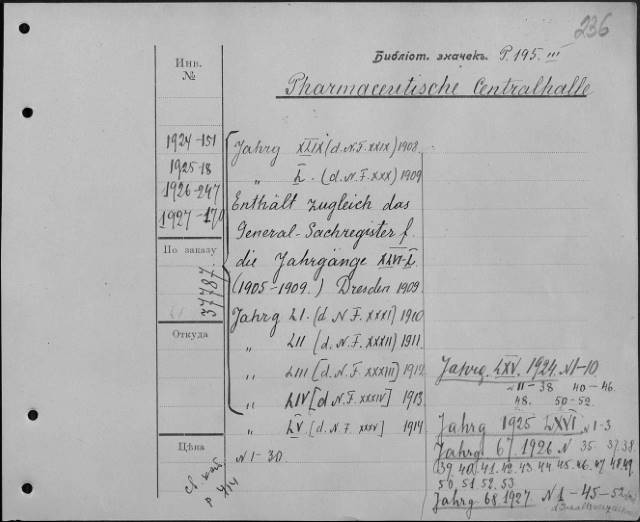 236
Библіот. значекъ. P. 195. III
Pharmaceutische Centralhalle
Инв.
№
1924-151
1925-18
1926-247
1927-170
По заказу
37787
Откуда
Цѣна
Jahrg XLIX (d. N.F. XXIX) 1908
„ L. (d. N.F. XXX) 1909
Enthält zugleich das
General-Sachregister f.
die Jahrgänge XLVI-L
(1905-1909.) Dresden 1909.
Jahrg LI. (d. N.F. XXXI) 1910
„ LII (d. N.F. XXXII) 1911.
„ LIII [d. N.F. XXXIII] 1912
„ LIV [d. N.F. XXXIV] 1913.
„ LV. [d. N.F. XXXV] 1914
N 1-30.
Jahrg. LXV. 1924. N1-10.
11-38 40-46.
48. 50-52
Jahrg 1925 LXVI N 1-3
Jahrg 67 1926 N 35 37.38.
39. 40. 41. 42. 43 44 45. 46. 47 48 49.
50. 51. 52. 53
Jahrg 68 1927 N 1-45-52